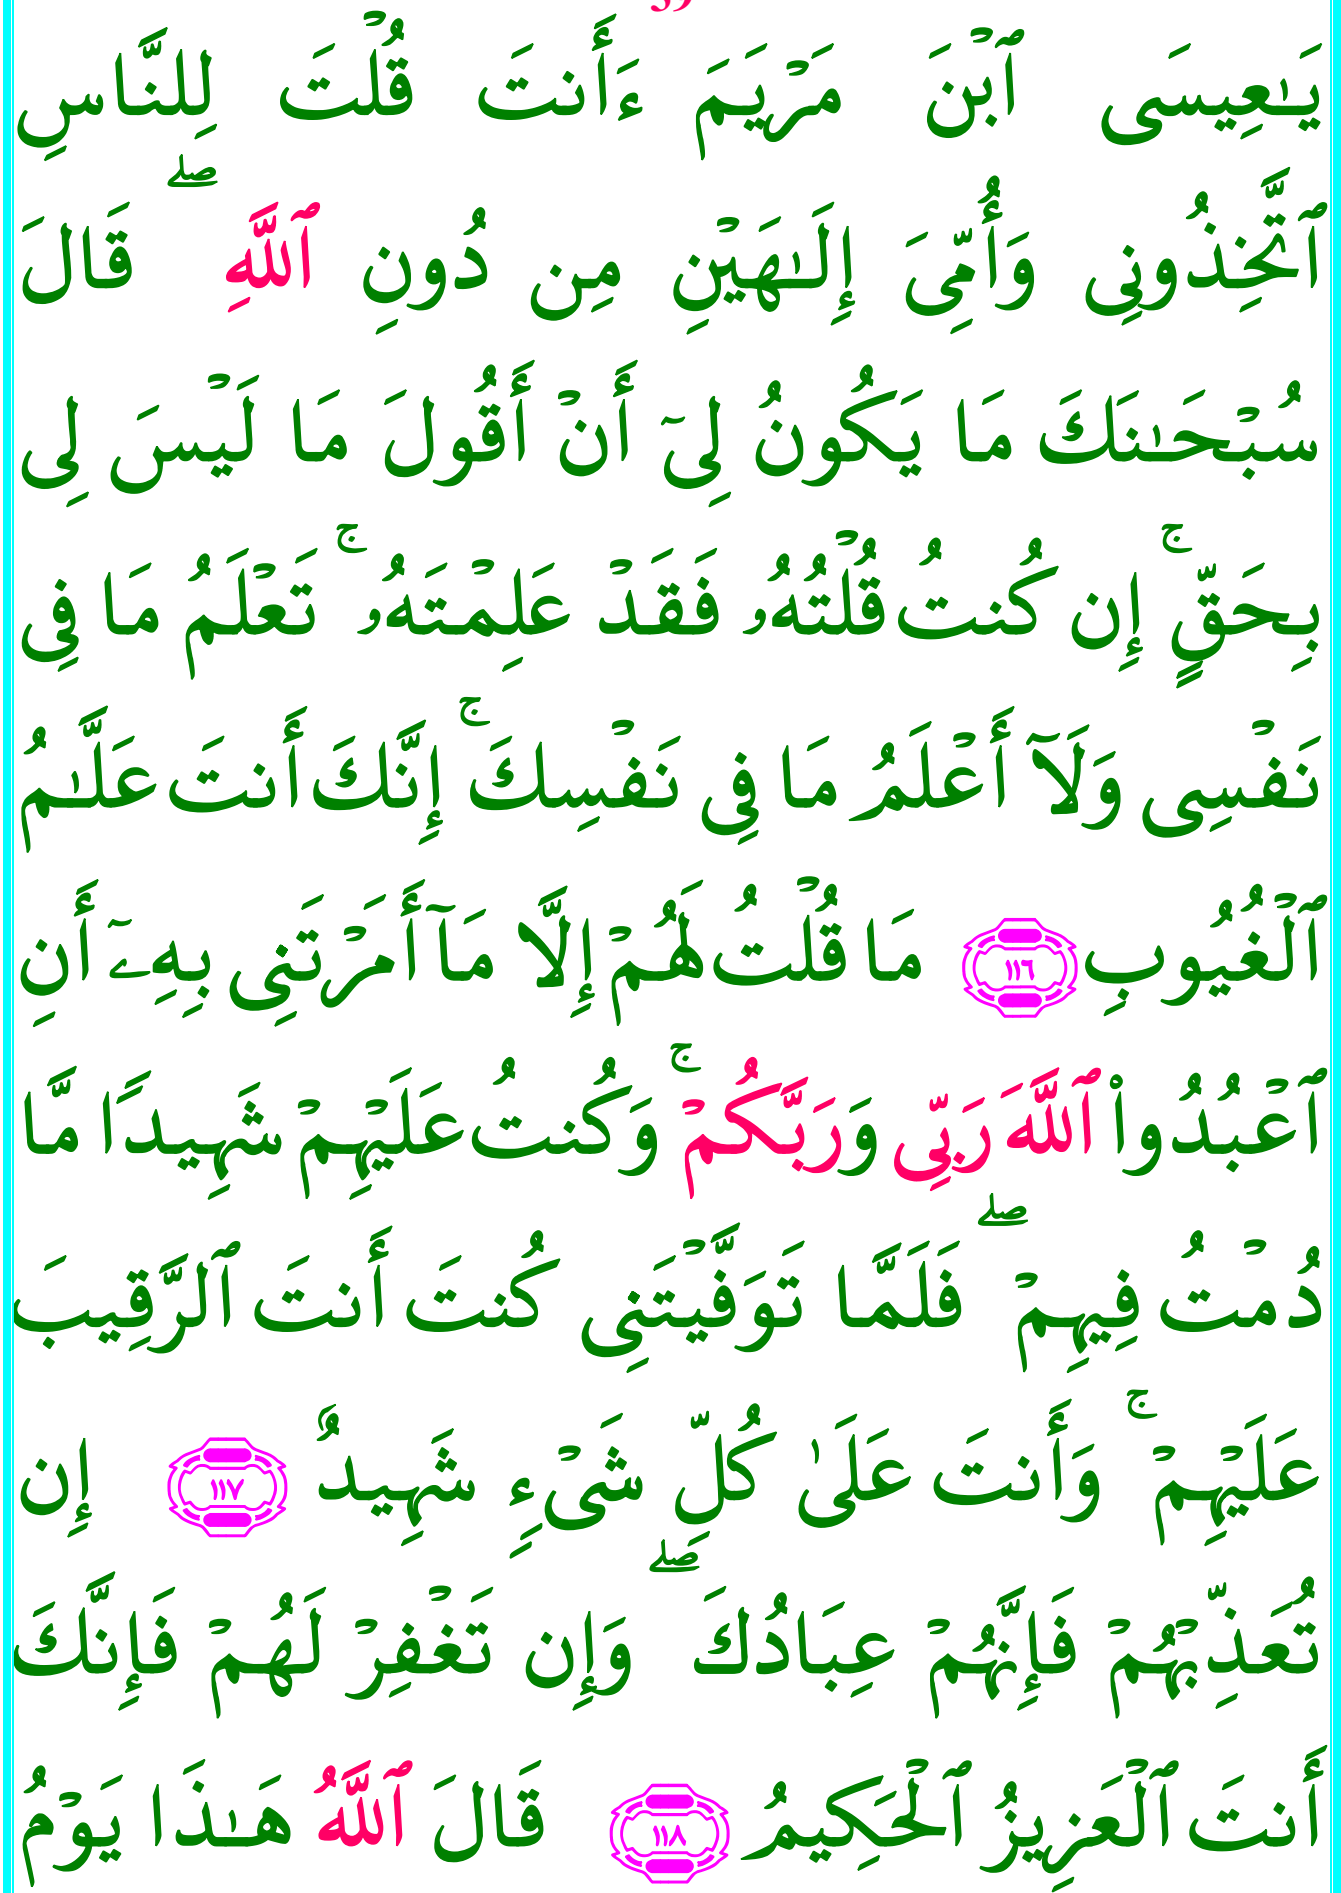 يَـٰعِيسَى ٱبْنَ مَرْيَمَ ءَأَنتَ قُلْتَ لِلنَّاسِ
ٱتَّخِذُونِى وَأُمِّىَ إِلَـٰهَيْنِ مِن دُونِ ٱللَّهِ ۖ قَالَ
سُبْحَـٰنَكَ مَا يَكُونُ لِىٓ أَنْ أَقُولَ مَا لَيْسَ لِى
بِحَقٍّ ۚ إِن كُنتُ قُلْتُهُۥ فَقَدْ عَلِمْتَهُۥ ۚ تَعْلَمُ مَا فِى
نَفْسِى وَلَآ أَعْلَمُ مَا فِى نَفْسِكَ ۚ إِنَّكَ أَنتَ عَلَّـٰمُ
ٱلْغُيُوبِ ١١٦ مَا قُلْتُ لَهُمْ إِلَّا مَآ أَمَرْتَنِى بِهِۦٓ أَنِ
ٱعْبُدُوا۟ ٱللَّهَ رَبِّى وَرَبَّكُمْ ۚ وَكُنتُ عَلَيْهِمْ شَهِيدًا مَّا
دُمْتُ فِيهِمْ ۖ فَلَمَّا تَوَفَّيْتَنِى كُنتَ أَنتَ ٱلرَّقِيبَ
عَلَيْهِمْ ۚ وَأَنتَ عَلَىٰ كُلِّ شَىْءٍ شَهِيدٌ ١١٧ إِن
تُعَذِّبْهُمْ فَإِنَّهُمْ عِبَادُكَ ۖ وَإِن تَغْفِرْ لَهُمْ فَإِنَّكَ
أَنتَ ٱلْعَزِيزُ ٱلْحَكِيمُ ١١٨ قَالَ ٱللَّهُ هَـٰذَا يَوْمُ